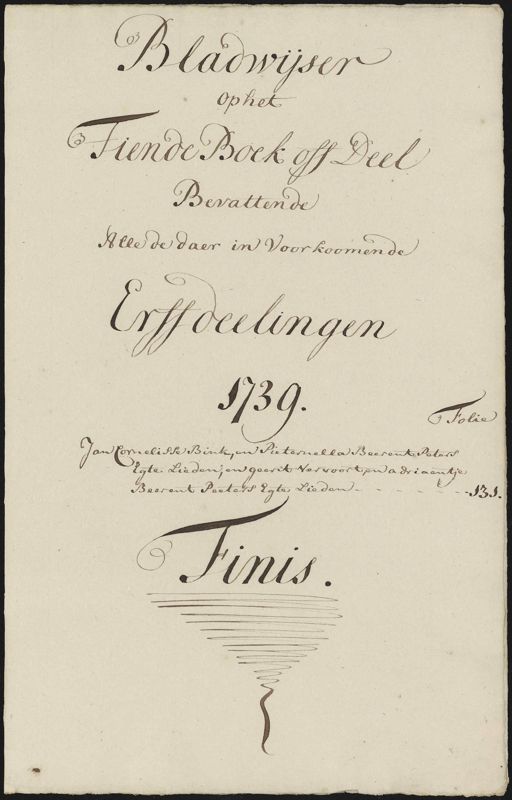 Bladwijser
op het
Tiende Boek off Deel
Bevattende
Alle de daer in Voorkoomende
Erffdeelingen
1739.
Folie
Jan Cornelisse Bink, en Pieternella Beerent Peters
Egte Lieden, en geerit Vervoort, en adriaentje
Beerent Peeters Egte Lieden - - - - - - - - 131.
Finis.